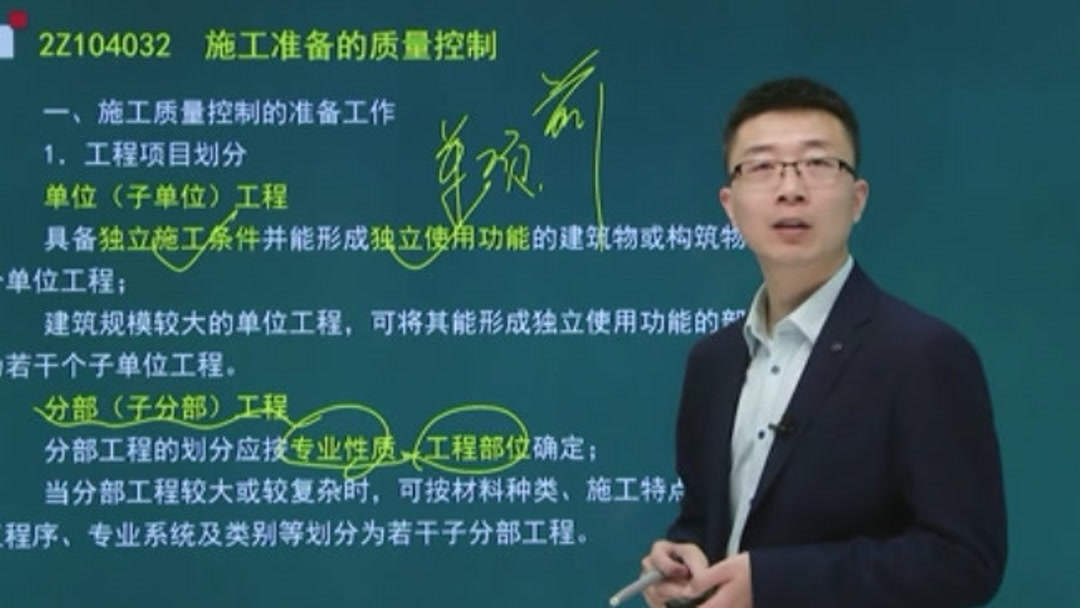 2Z104032 施工准备的质量控制
一、施工质量控制的准备工作
1. 工程项目划分
单项
单位（子单位）工程
具备独立施工条件并能形成独立使用功能的建筑物或构筑物
单位工程；
建筑规模较大的单位工程，可将其能形成独立使用功能的部
若干个子单位工程。
分部（子分部）工程
分部工程的划分应按专业性质、工程部位确定；
当分部工程较大或较复杂时，可按材料种类、施工特点
程序、专业系统及类别等划分为若干子分部工程。